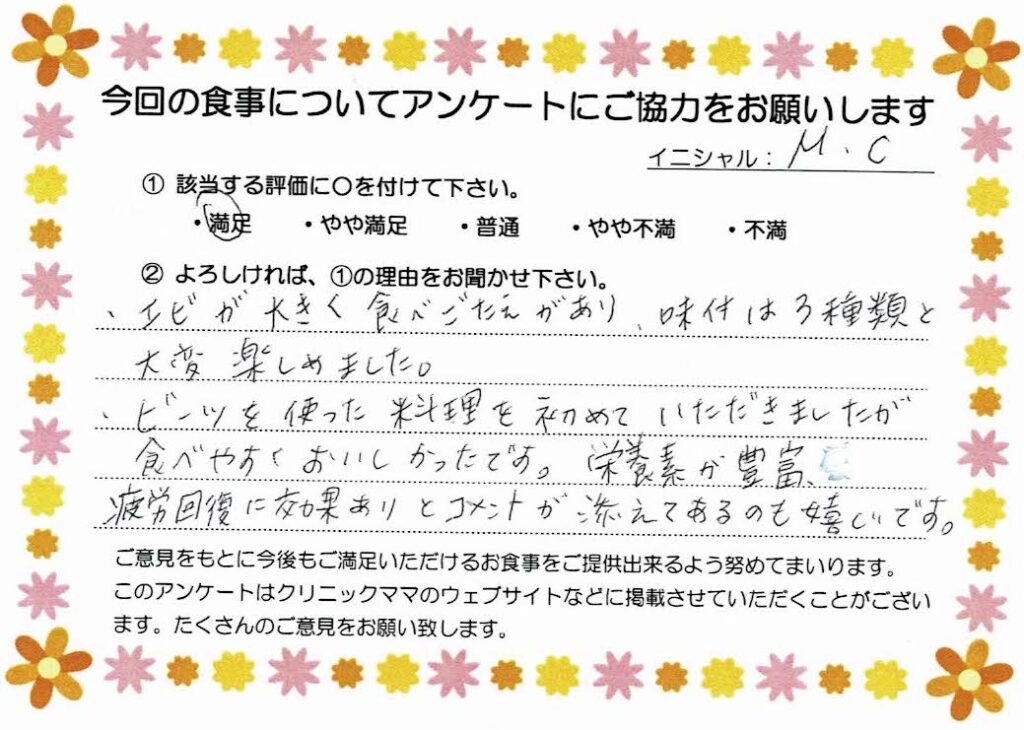 今回の食事についてアンケートにご協力をお願いします
イニシャル： M.C
① 該当する評価に〇を付けて下さい。
・満足 ・やや満足 ・普通 ・やや不満 ・不満
② よろしければ、①の理由をお聞かせ下さい。
、エビが大きく食べごたえがあり、味付は3種類と
大変楽しめました。
、ビーツを使った料理を初めていただきましたが
食べやすくおいしかったです。栄養素が豊富、
疲労回復に効果ありとコメントが添えてあるのも嬉しいです。
ご意見をもとに今後もご満足いただけるお食事をご提供出来るよう努めてまいります。
このアンケートはクリニックママのウェブサイトなどに掲載させていただくことがござい
ます。たくさんのご意見をお願い致します。